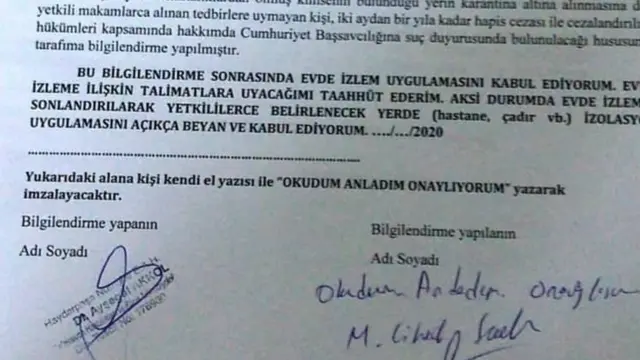 bulunduğu yerin karantina altına alınmasına
yetkili makamlarca alınan tedbirlere uymayan kişi, iki aydan bir yıla kadar hapis cezası ile cezalandırıla
hükümleri kapsamında hakkımda Cumhuriyet Başsavcılığına suç duyurusunda bulunulacağı hususun
tarafıma bilgilendirme yapılmıştır.
BU BİLGİLENDİRME SONRASINDA EVDE İZLEM UYGULAMASINI KABUL EDİYORUM. EV
İZLEME İLİŞKİN TALİMATLARA UYACAĞIMI TAAHHÜT EDERİM. AKSİ DURUMDA EVDE İZLEM
SONLANDIRILARAK YETKİLİLERCE BELİRLENECEK YERDE (hastane, çadır vb.) İZOLASYO
UYGULAMASINI AÇIKÇA BEYAN VE KABUL EDİYORUM. ..../.../2020
Yukarıdaki alana kişi kendi el yazısı ile "OKUDUM ANLADIM ONAYLIYORUM" yazarak
imzalayacaktır.
Bilgilendirme yapanın
Bilgilendirme yapılanın
Adı Soyadı
Adı Soyadı
Haydarpaşa
Okudum Anladım Onaylıyorum
M.